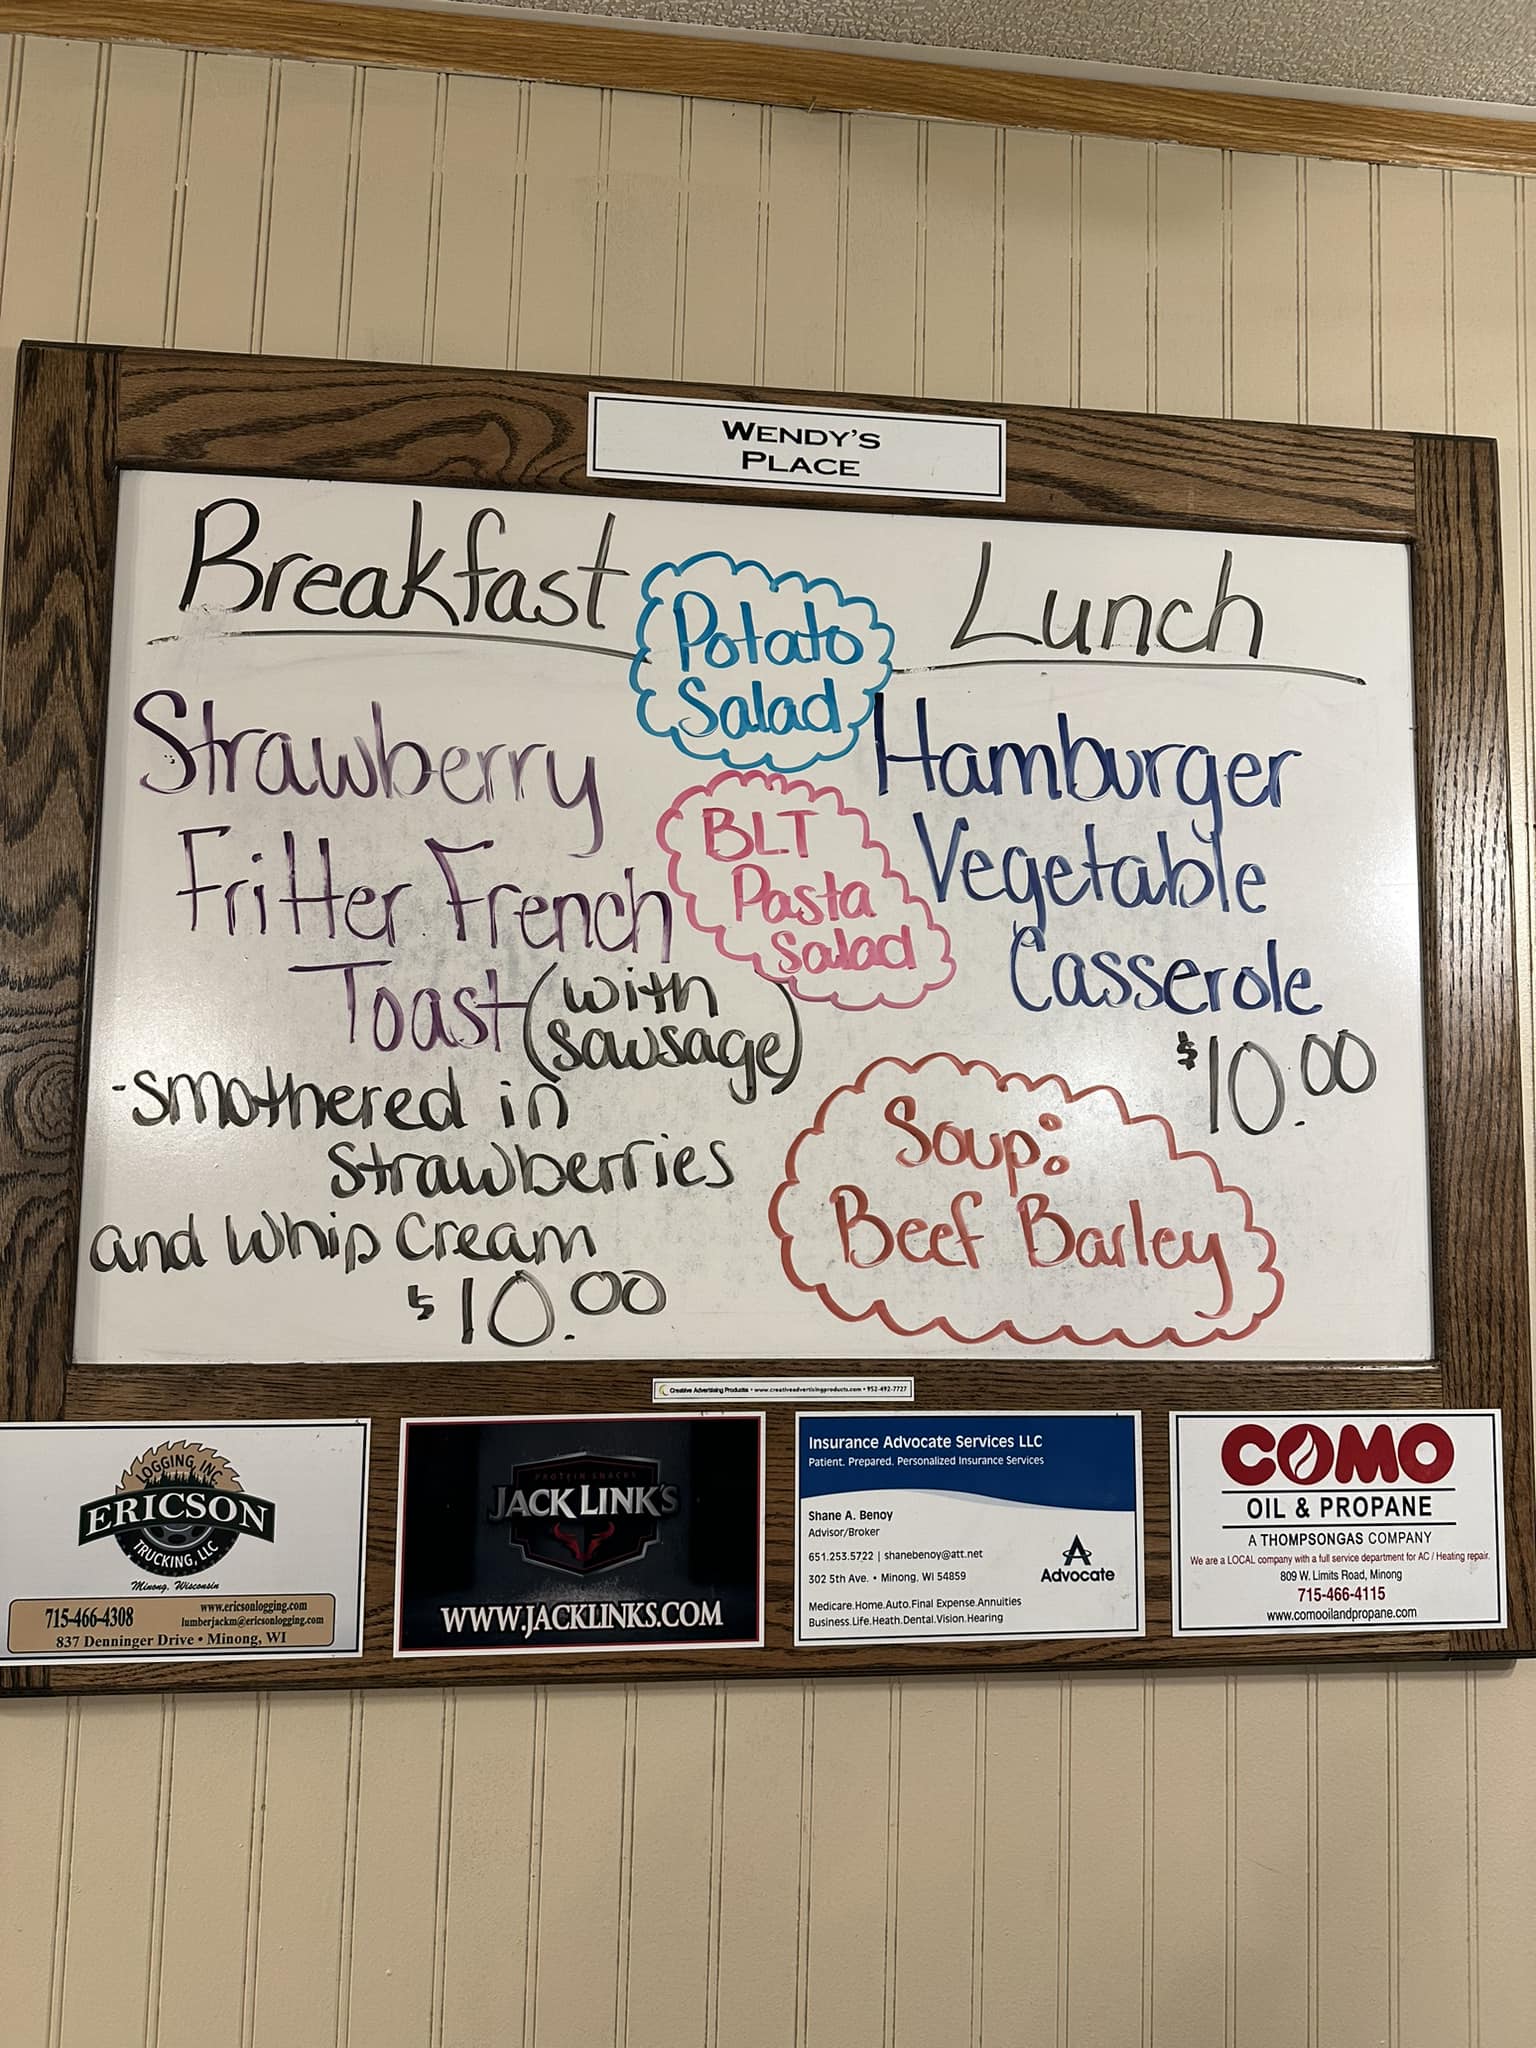 WENDY'S
PLACE
Breakfast
Strawberry
Fritter French
Toast (with
sausage)
-smothered in
strawberries
and whip cream
$10.00
Potato
Salad
BLT
Pasta
Salad
Lunch
Hamburger
Vegetable
Casserole
$10.00
Soup:
Beef Barley
Creative Advertising Products • www.creativeadvertisingproducts.com • 952-492-7727
LOGGING, INC.
ERICSON
TRUCKING, LLC
Minong, Wisconsin
715-466-4308
www.ericsonlogging.com
lumberjackm@ericsonlogging.com
837 Denninger Drive • Minong, WI
PROTEIN SNACKS
JACK LINK'S
WWW.JACKLINKS.COM
Insurance Advocate Services LLC
Patient. Prepared. Personalized Insurance Services
Shane A. Benoy
Advisor/Broker
651.253.5722 | shanebenoy@att.net
302 5th Ave. • Minong, WI 54859
Advocate
Medicare.Home.Auto.Final Expense.Annuities
Business.Life.Heath.Dental.Vision.Hearing
COMO
OIL & PROPANE
A THOMPSONGAS COMPANY
We are a LOCAL company with a full service department for AC / Heating repair.
809 W. Limits Road, Minong
715-466-4115
www.comooilandpropane.com